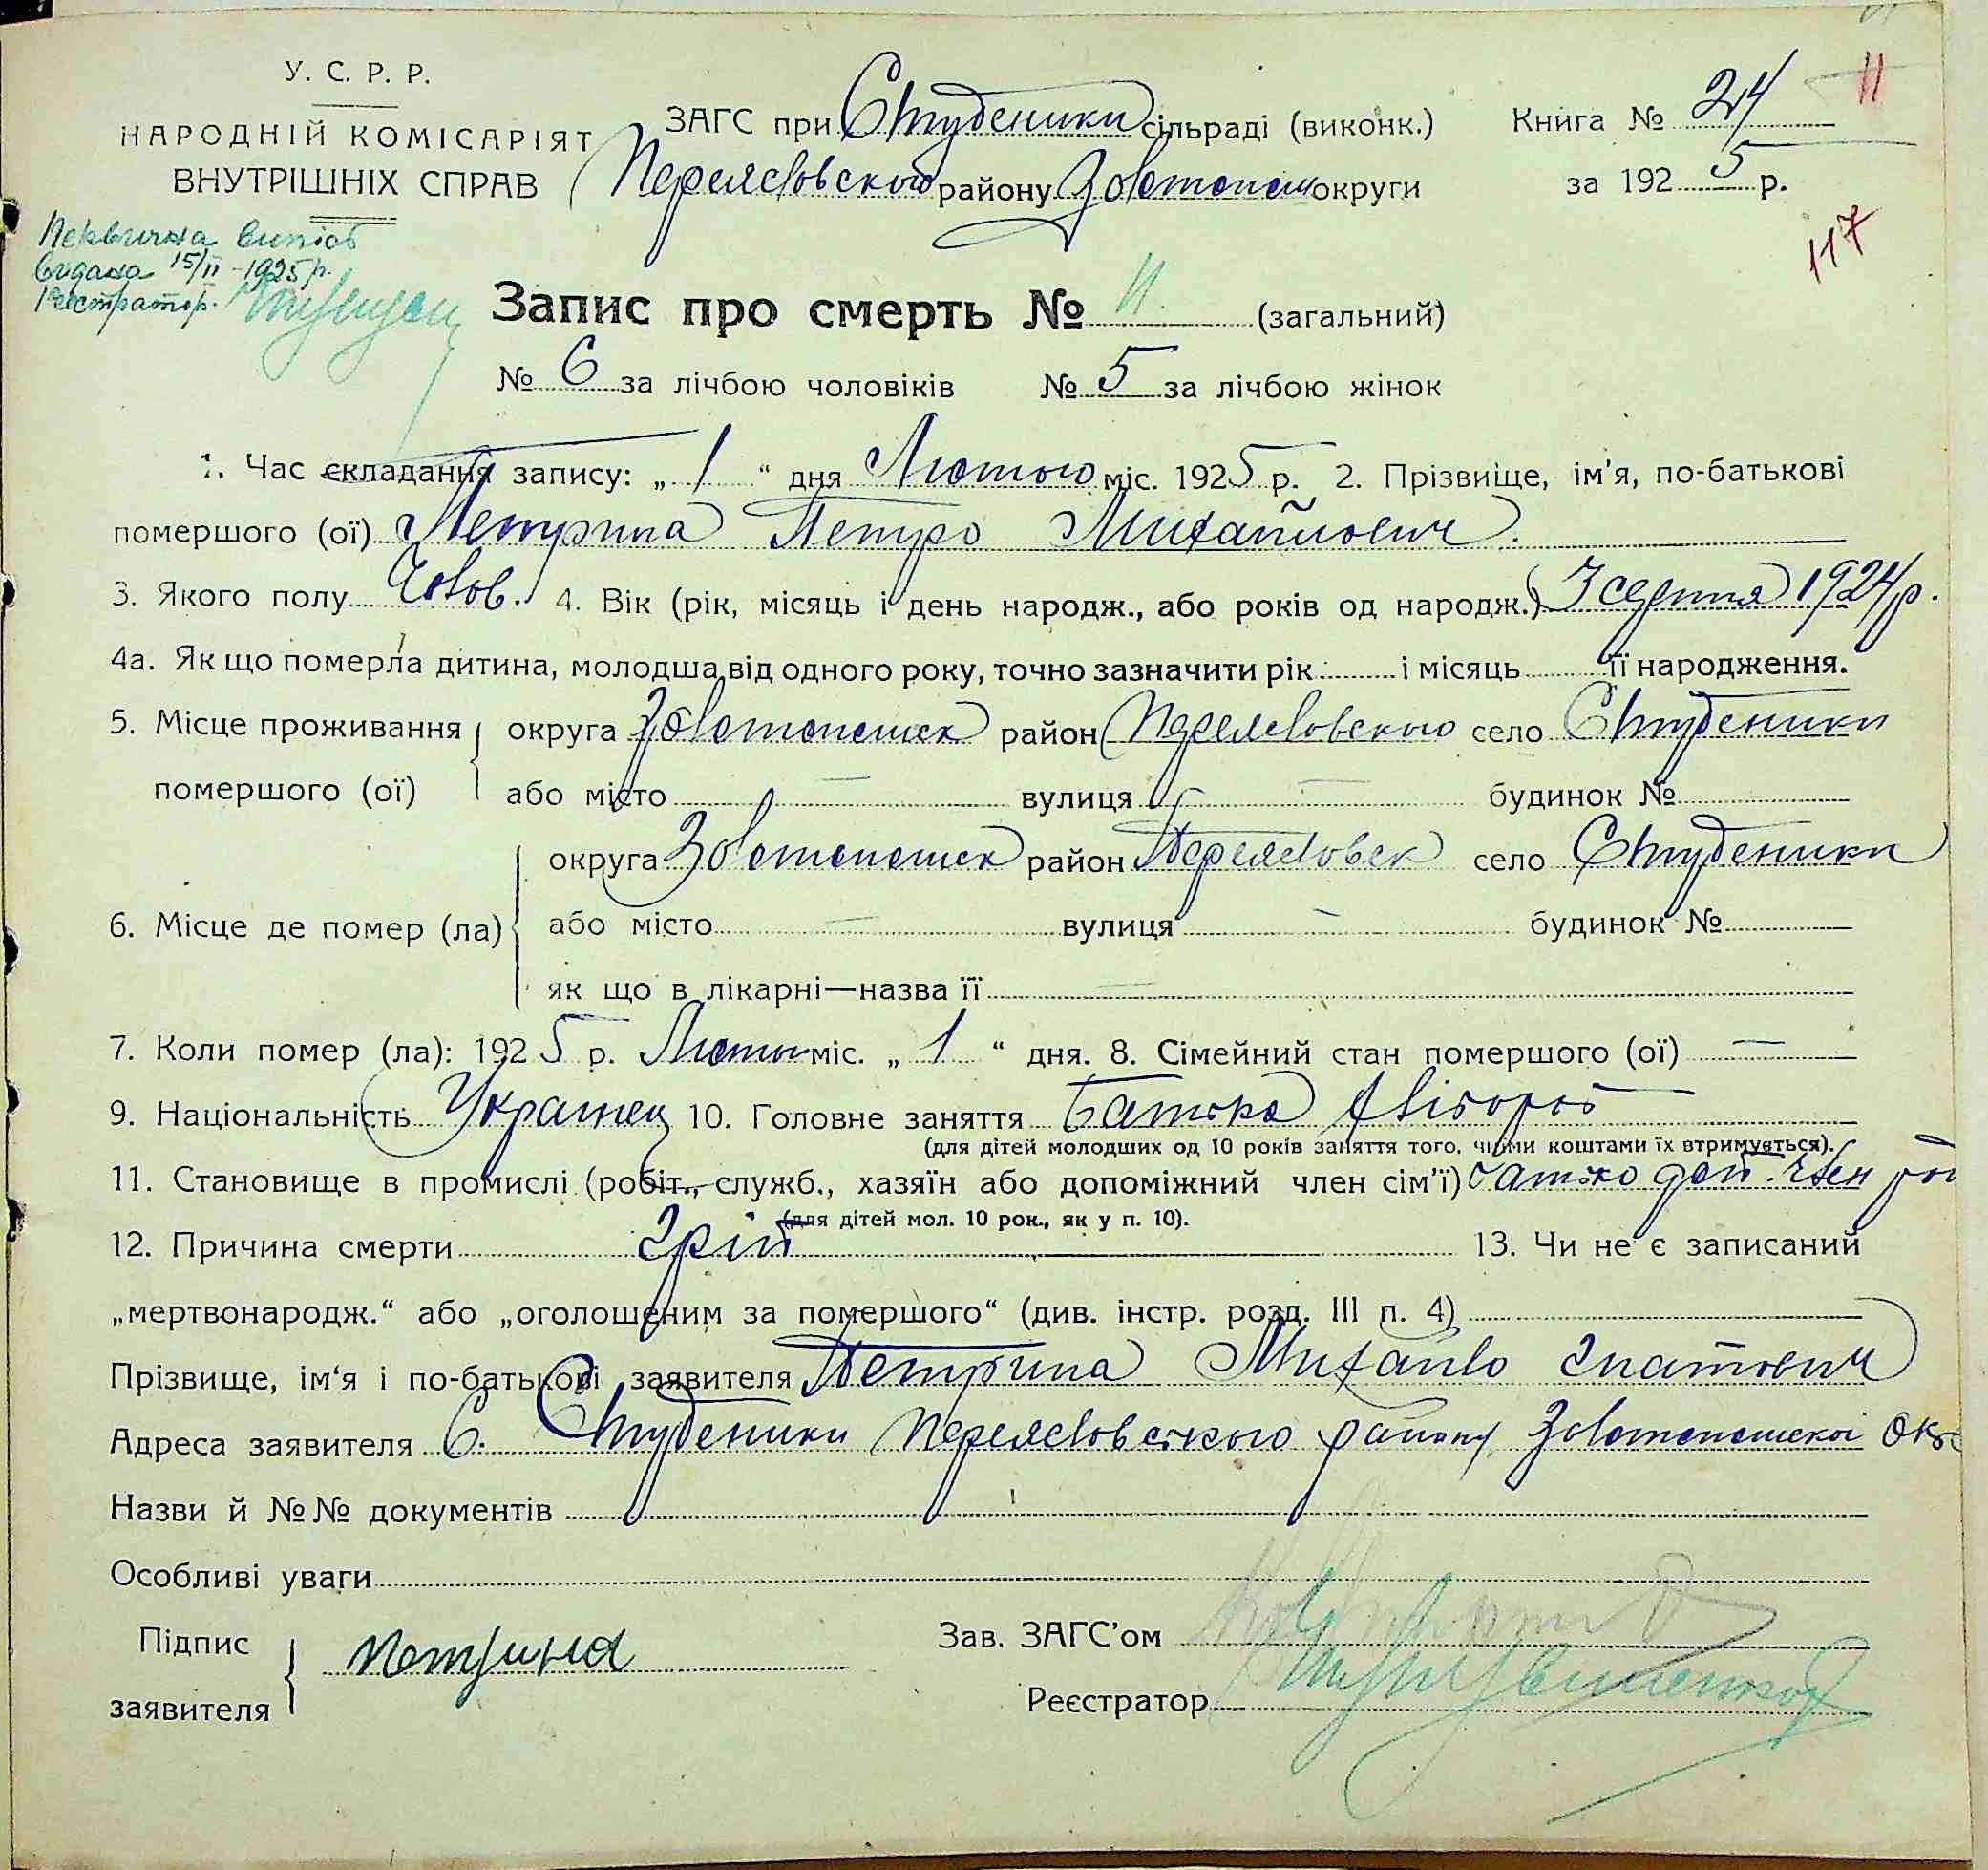 У. С. Р. Р.
НАРОДНІЙ КОМІСАРІЯТ
ВНУТРІШНІХ СПРАВ
ЗАГС при Студеники сільраді (виконк.)
Переяславського району Золотонош округи
Книга № 24
11
за 1925 р.
117
Первична випись
видана 15/II - 1925 р.
Реєстратор.
Запис про смерть № 11. (загальний)
№ 6 за лічбою чоловіків № 5 за лічбою жінок
1. Час складання запису: „1“ дня Лютого міс. 1925 р. 2. Прізвище, ім'я, по-батькові
помершого (ої) Петрина Петро Михайлович.
3. Якого полу Чолов. 4. Вік (рік, місяць і день народж., або років од народж.) 3 серпня 1924 р.
4а. Як що померла дитина, молодша від одного року, точно зазначити рік і місяць її народження.
5. Місце проживання
помершого (ої)
округа Золотоношск район Переяславського село Студеники
або місто — вулиця — будинок №
6. Місце де помер (ла)
округа Золотоношск район Переяславск село Студеники
або місто — вулиця — будинок №
як що в лікарні—назва її —
7. Коли помер (ла): 1925 р. Лютого міс. „1“ дня. 8. Сімейний стан помершого (ої) —
9. Національність Украінец 10. Головне заняття Батька хлібороб
(для дітей молодших од 10 років заняття того, чиїми коштами їх втримується).
11. Становище в промислі (робіт., служб., хазяїн або допоміжний член сім'ї) батько доп. член
(для дітей мол. 10 рок., як у п. 10).
12. Причина смерти Гріп 13. Чи не є записаний
„мертвонародж.“ або „оголошеним за помершого“ (див. інстр. розд. III п. 4)
Прізвище, ім'я і по-батькові заявителя Петрина Михайло Гнатович
Адреса заявителя С. Студеники Переяславського району Золотоношскоі Окр
Назви й №№ документів
Особливі уваги
Підпис
заявителя
Петрина
Зав. ЗАГС'ом
Реєстратор